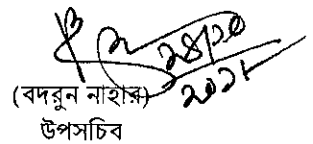 ২৪/১০
২০২১
(বদরুন নাহার)
উপসচিব